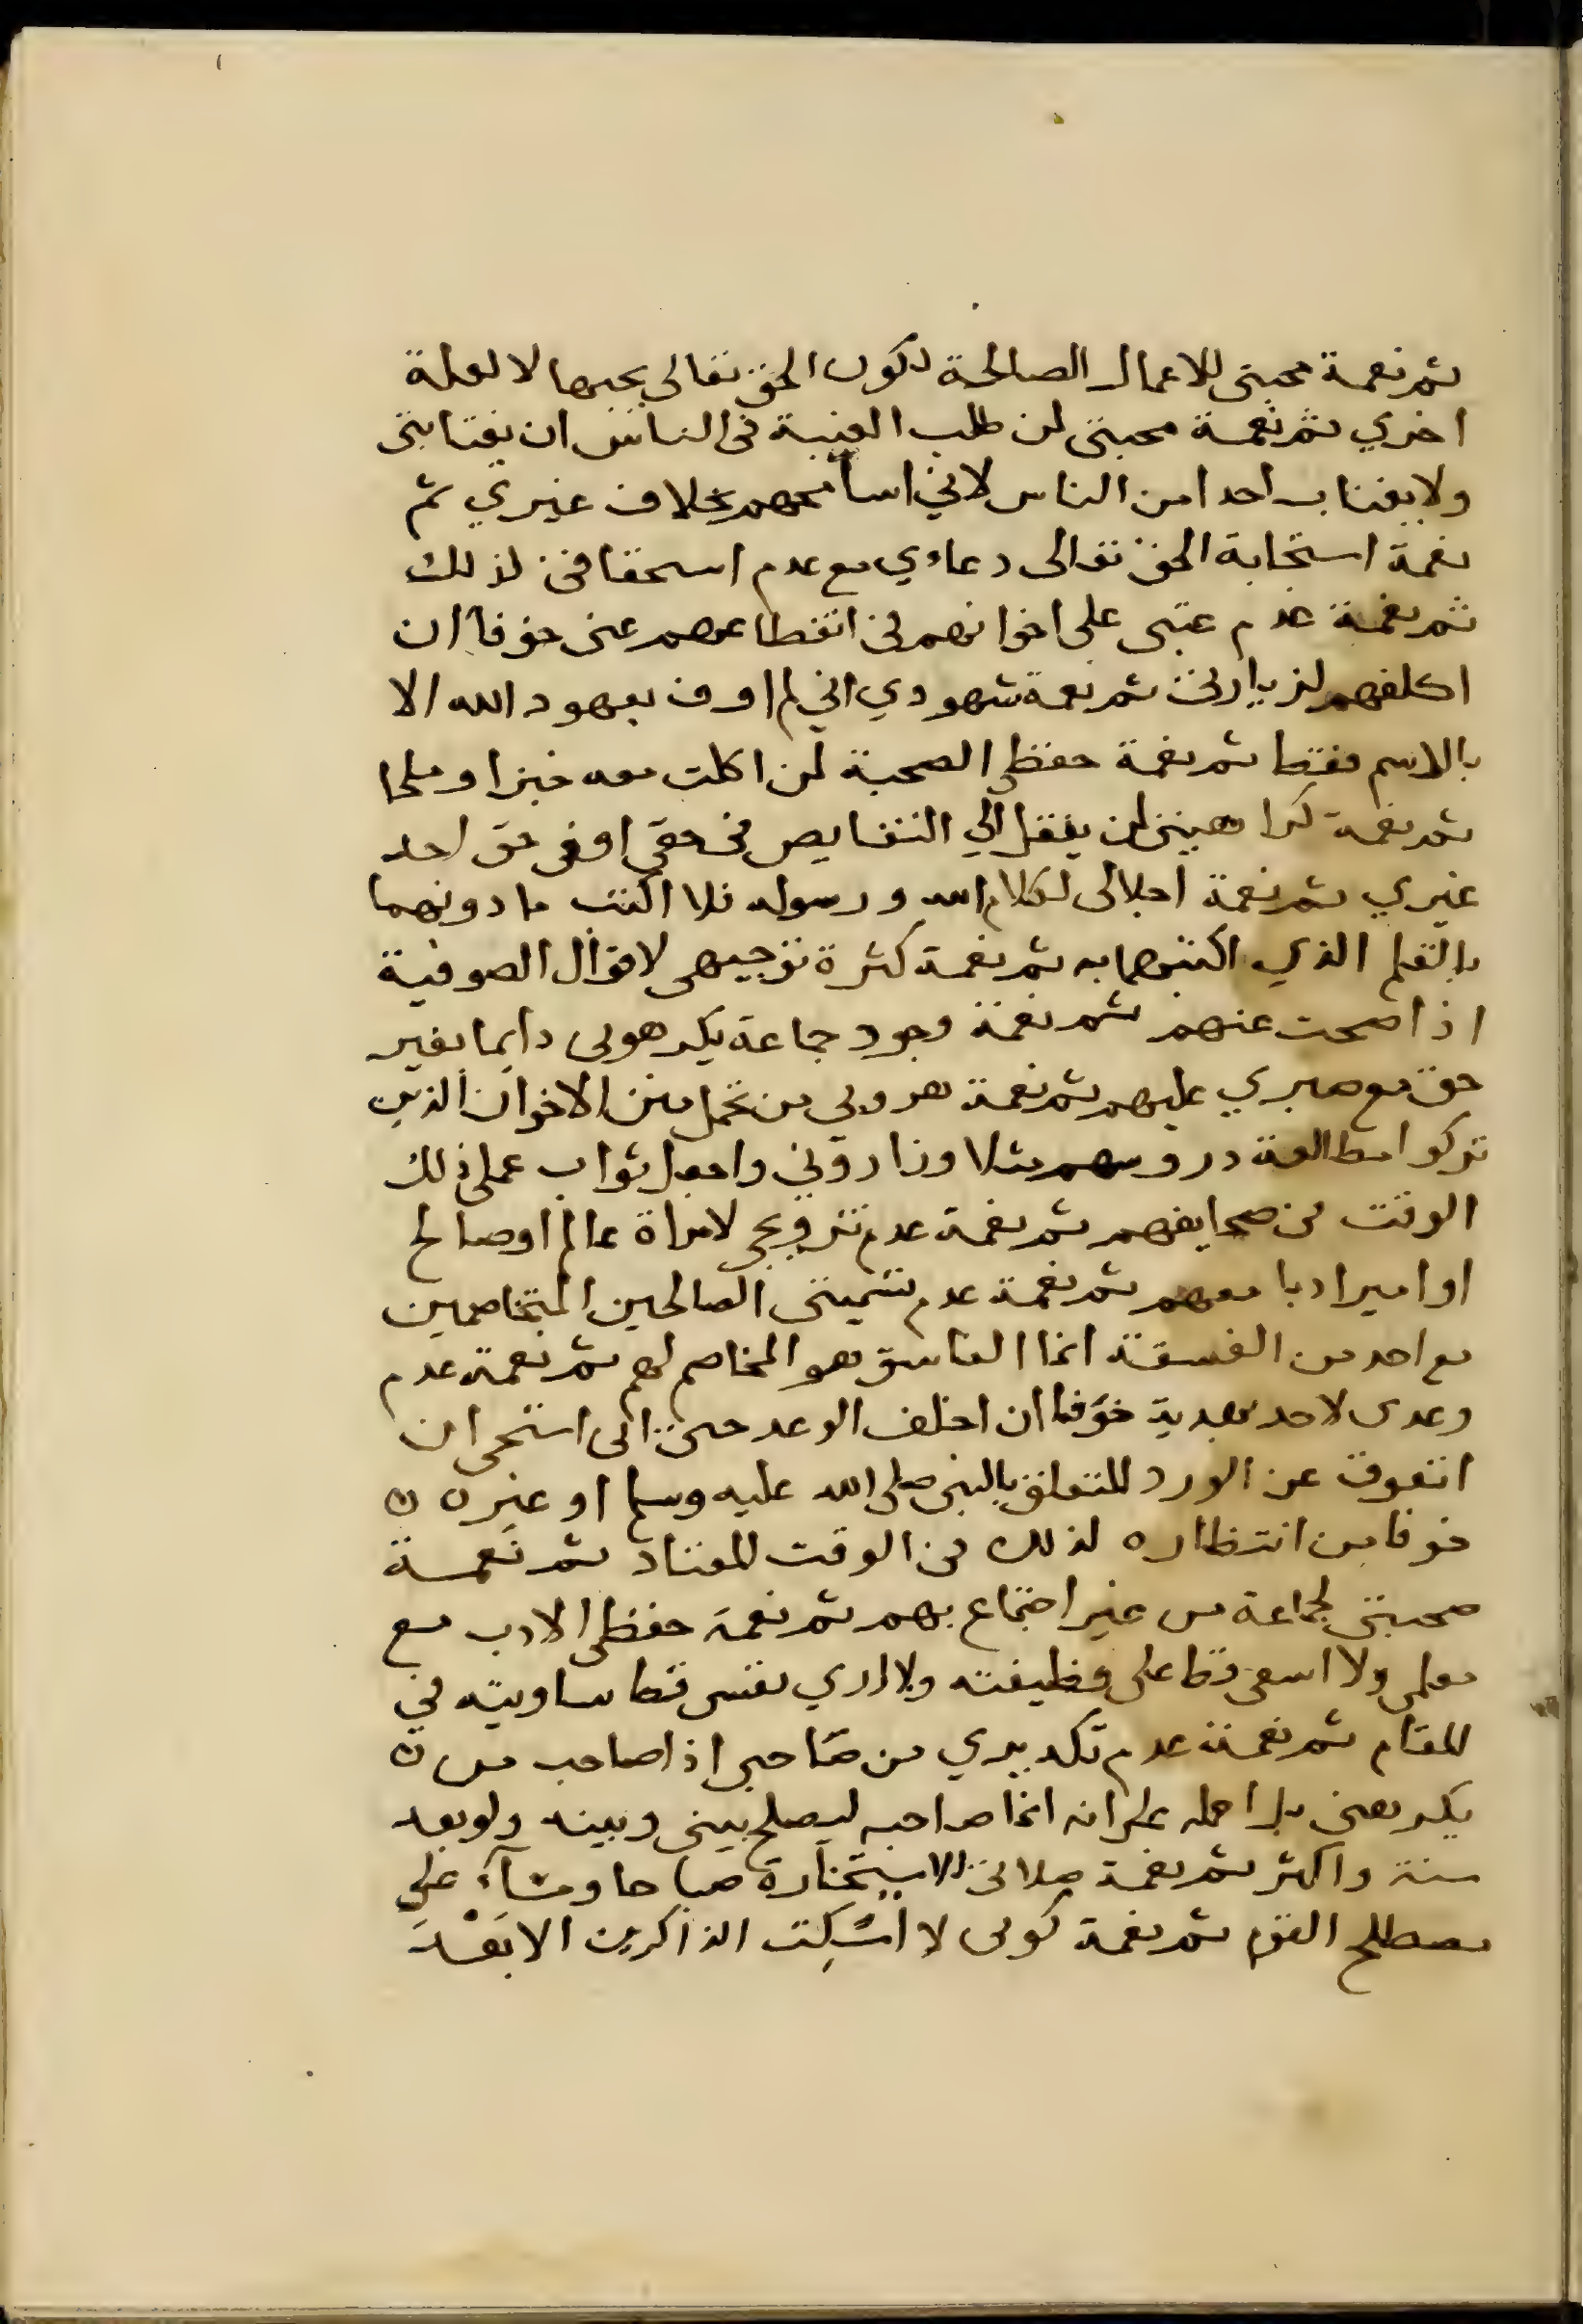 ثم نعمة محبتى للاعمال الصالحة لكون الحق تعالى يحبها لا لعلة
اخري ثم نعمة محبتى لمن طلب الغيبة فى الناس ان يغتابنى
ولا يغتاب احدا من الناس لاني اسامحهم بخلاف غيري ثم
نعمة استجابة الحق تعالى دعاءي مع عدم استحقاقى لذلك
ثم نعمة عدم عتبى على اخوانهم فى انقطاعهم عنى خوفا ان
اكلفهم لزيارتى ثم نعمة شهودي اني لم اوف بعهود الله الا
بالاسم فقط ثم نعمة حفظى الصحبة لمن اكلت معه خبزا وملحا
ثم نعمة كراهيتى لمن ينقل الي النقايص فى حقى او فى حق احد
غيري ثم نعمة اجلالى لكلام الله ورسوله فلا اكتب ما دونهما
بالقلم الذي اكتبهما به ثم نعمة كثرة توجيهى لاقوال الصوفية
اذا صحت عنهم ثم نعمة وجود جماعة يكرهونى دايما بغير
حق مع صبري عليهم ثم نعمة هروبى من تحمل منن الاخوان الذين
تركوا مطالعة دروسهم مثلا وزاروني واجعل ثواب عملى ذلك
الوقت فى صحايفهم ثم نعمة عدم تزويجى لامراة عالم او صالح
او امير ادبا معهم ثم نعمة عدم تسميتى الصالحين المتخاصمين
مع احد من الفسقة انما الفاسق هو المخاصم لهم ثم نعمة عدم
وعدى لاحد بهدية خوفا ان اخلف الوعد حتى انى استحى ان
اتعوق عن الورد المتعلق بالنبى صلى الله عليه وسلم او غيره
خوفا من انتظاره لذلك فى الوقت المعتاد ثم نعمة
صحبتى لجماعة من غير اجتماع بهم ثم نعمة حفظى الادب مع
معلمى ولا اسعى قط على وظيفته ولا اري نفسى قط ساويته في
المقام ثم نعمة عدم تكديري من صاحبى اذا صاحب من
يكرهنى بل احمله على انه انما صاحبه ليصلح بينى وبينه ولو بعد
سنة واكثر ثم نعمة صلاتى الاستخارة صباحا ومساآء على
مصطلح القوم ثم نعمة كونى لا اسْكِت الذاكرين الا بَعْدَ